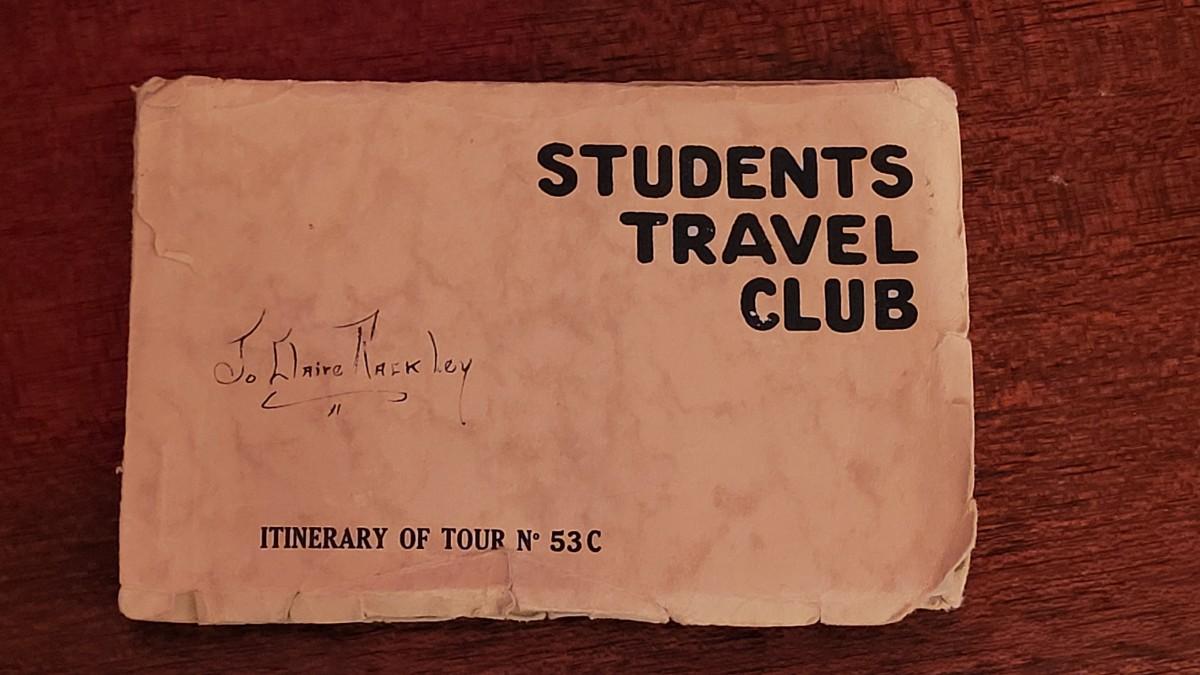 STUDENTS
TRAVEL
CLUB
Jo Claire Rackley
"
ITINERARY OF TOUR Nº 53C